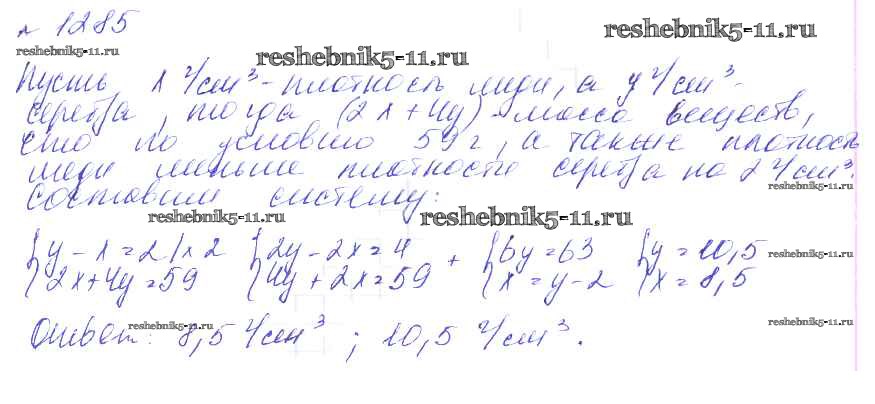 № 1285
reshebnik5-11.ru reshebnik5-11.ru reshebnik5-11.ru
Пусть x г/см³ - плотность меди, а y г/см³ -
серебра, тогда (2x+4y) - масса веществ,
что по условию 59 г, а также плотность
меди меньше плотности серебра на 2 г/см³.
reshebnik5-11.ru
Составим систему:
reshebnik5-11.ru reshebnik5-11.ru
{y - x = 2 | x 2 {2y - 2x = 4 + {6y = 63 {y = 10,5
{2x + 4y = 59 {4y + 2x = 59 {x = y - 2 {x = 8,5
reshebnik5-11.ru
Ответ: 8,5 г/см³; 10,5 г/см³.
reshebnik5-11.ru reshebnik5-11.ru